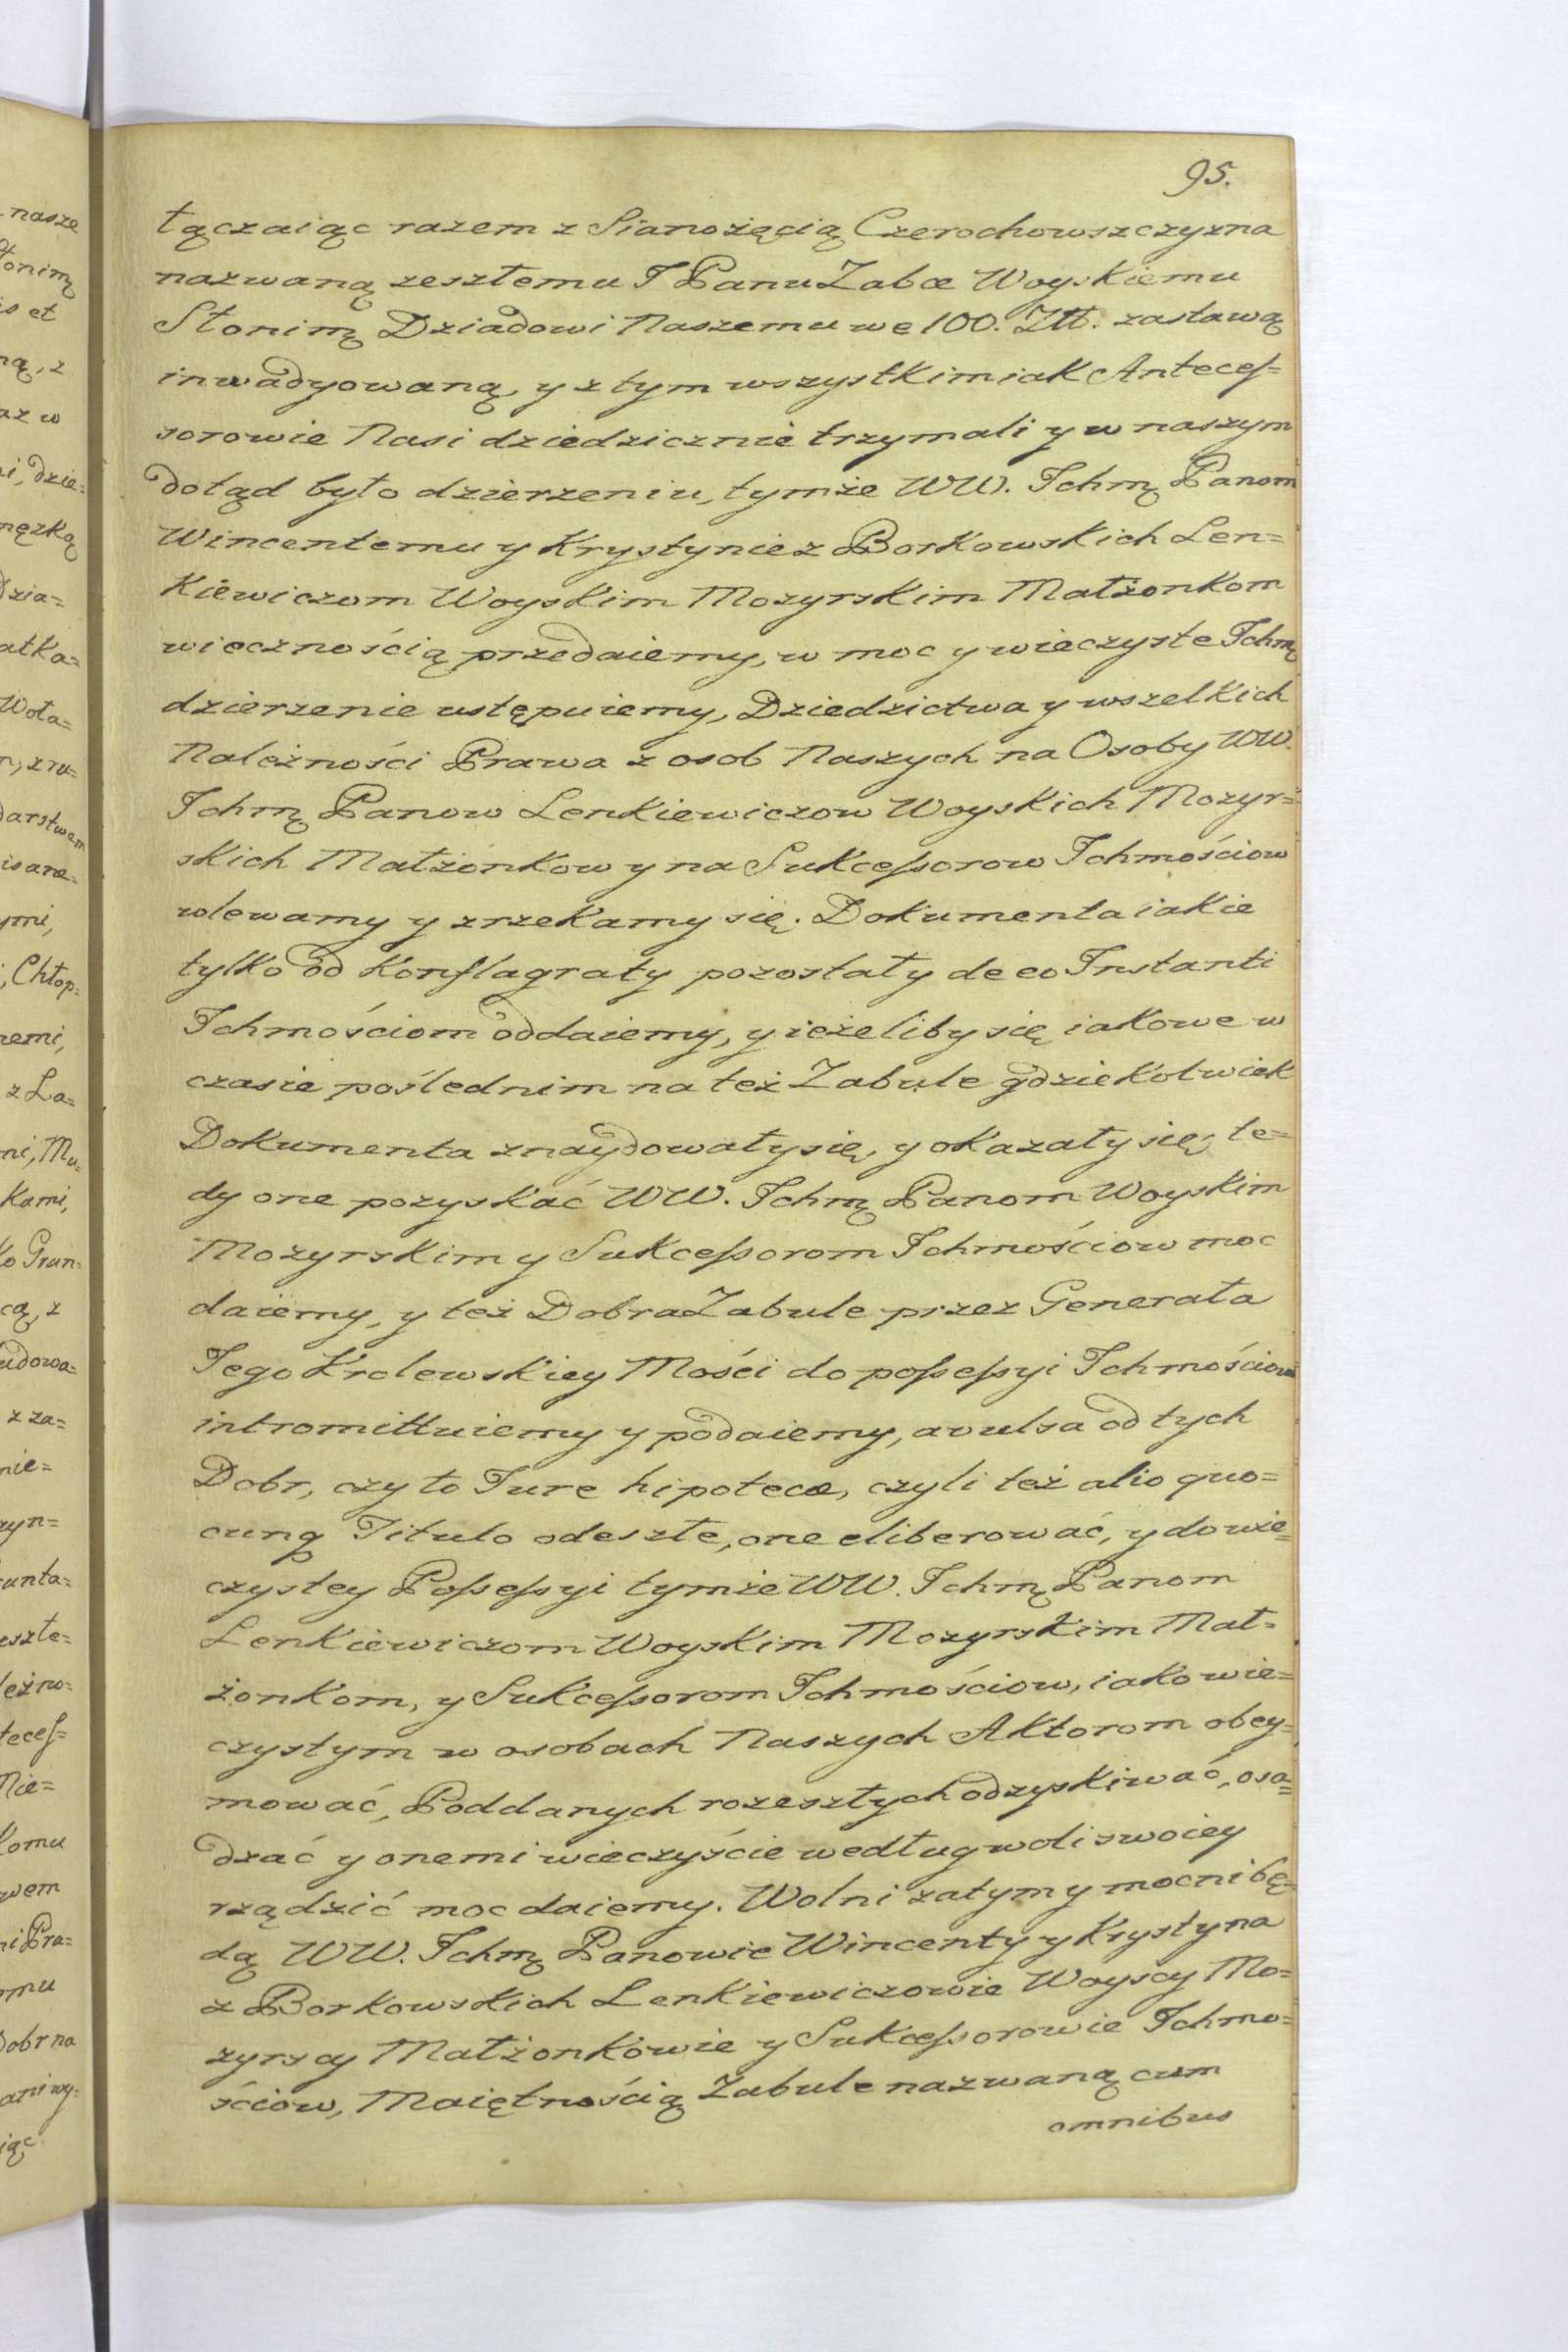 95.
łączaiąc razem z Sianożęcią Czerochowszczyzna
nazwaną zeszłemu J Panu Zabæ Woyskiemu
Słonimą Dziadowi Naszemu we 100. Złł. zastawą
inwadyowaną, y z tym wszystkim iak Anteceſ=
sorowie Nasi dziedzicznie trzymali y w naszym
dotąd było dzierzeniu, tymże WW. Ichmą Panom
Wincentemu y Krystynie z Borkowskich Len=
kiewiczom Woyskim Mozyrskim Małżonkom
wiecznością przedaiemy, w moc y wieczyste Ichmą
dzierzenie ustępuiemy, Dziedzictwa y wszelkich
Należności Prawa z osob Naszych na Osoby WW.
Ichmą Panow Lenkiewiczow Woyskich Mozyr=
skich Małżonkow y na Sukceſsorow Ichmościow
wlewamy y zrzekamy się. Dokumenta iakie
tylko od Konflagraty pozostały de eo Instanti
Ichmościom oddaiemy, y ieżeliby się iakowe w
czasie poślednim na też Zabule gdziekolwiek
Dokumenta znaydowały się, y okazały się, te=
dy one pozyskać WW. Ichmą Panom Woyskim
Mozyrskim y Sukceſsorom Ichmościow moc
daiemy, y też Dobra Zabule przez Generała
Jego Krolewskiey Mości do poſseſsyi Ichmościow
intromittuiemy y podaiemy, avulsa od tych
Dobr, czy to Jure hipotecæ, czyli też alio quo=
cunq Titulo odeszłe, one eliberować, y do wie=
czystey Poſseſsyi tymże WW. Ichmą Panom
Lenkiewiczom Woyskim Mozyrskim Mał=
żonkom, y Sukceſsorom Ichmościow, iako wie=
czystym w osobach Naszych Aktorom obey=
mować, Poddanych rozeszłych odzyskiwać, osa=
dzać y onemi wieczyście według woli swoiey
rządzić moc daiemy. Wolni zatym y mocni bę=
dą WW. Ichmą Panowie Wincenty y Krystyna
z Borkowskich Lenkiewiczowie Woyscy Mo=
zyrscy Małżonkowie y Sukceſsorowie Ichmo=
ściow, Maiętnością Zabule nazwaną cum
omnibus